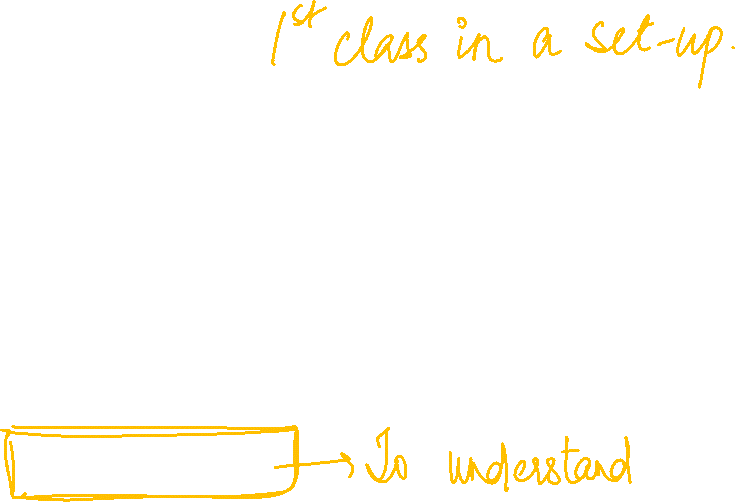 1st class in a set-up.
To understand